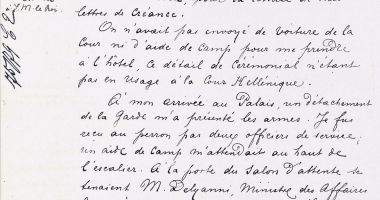 à S. M. le Roi.
lettres de Créance.
On n'avait pas envoyé de voiture de la
Cour ni d'aide de camp pour me prendre
à l'hôtel, ce détail de Cérémonial n'étant
pas en usage à la Cour Hellénique.
À mon arrivée au Palais, un détachement
de la Garde m'a présenté les armes. Je fus
reçu au perron par deux officiers de service,
un aide de camp m'attendait au haut de
l'escalier. À la porte du salon d'attente se
tenaient M. Delyanni, Ministre des Affaires